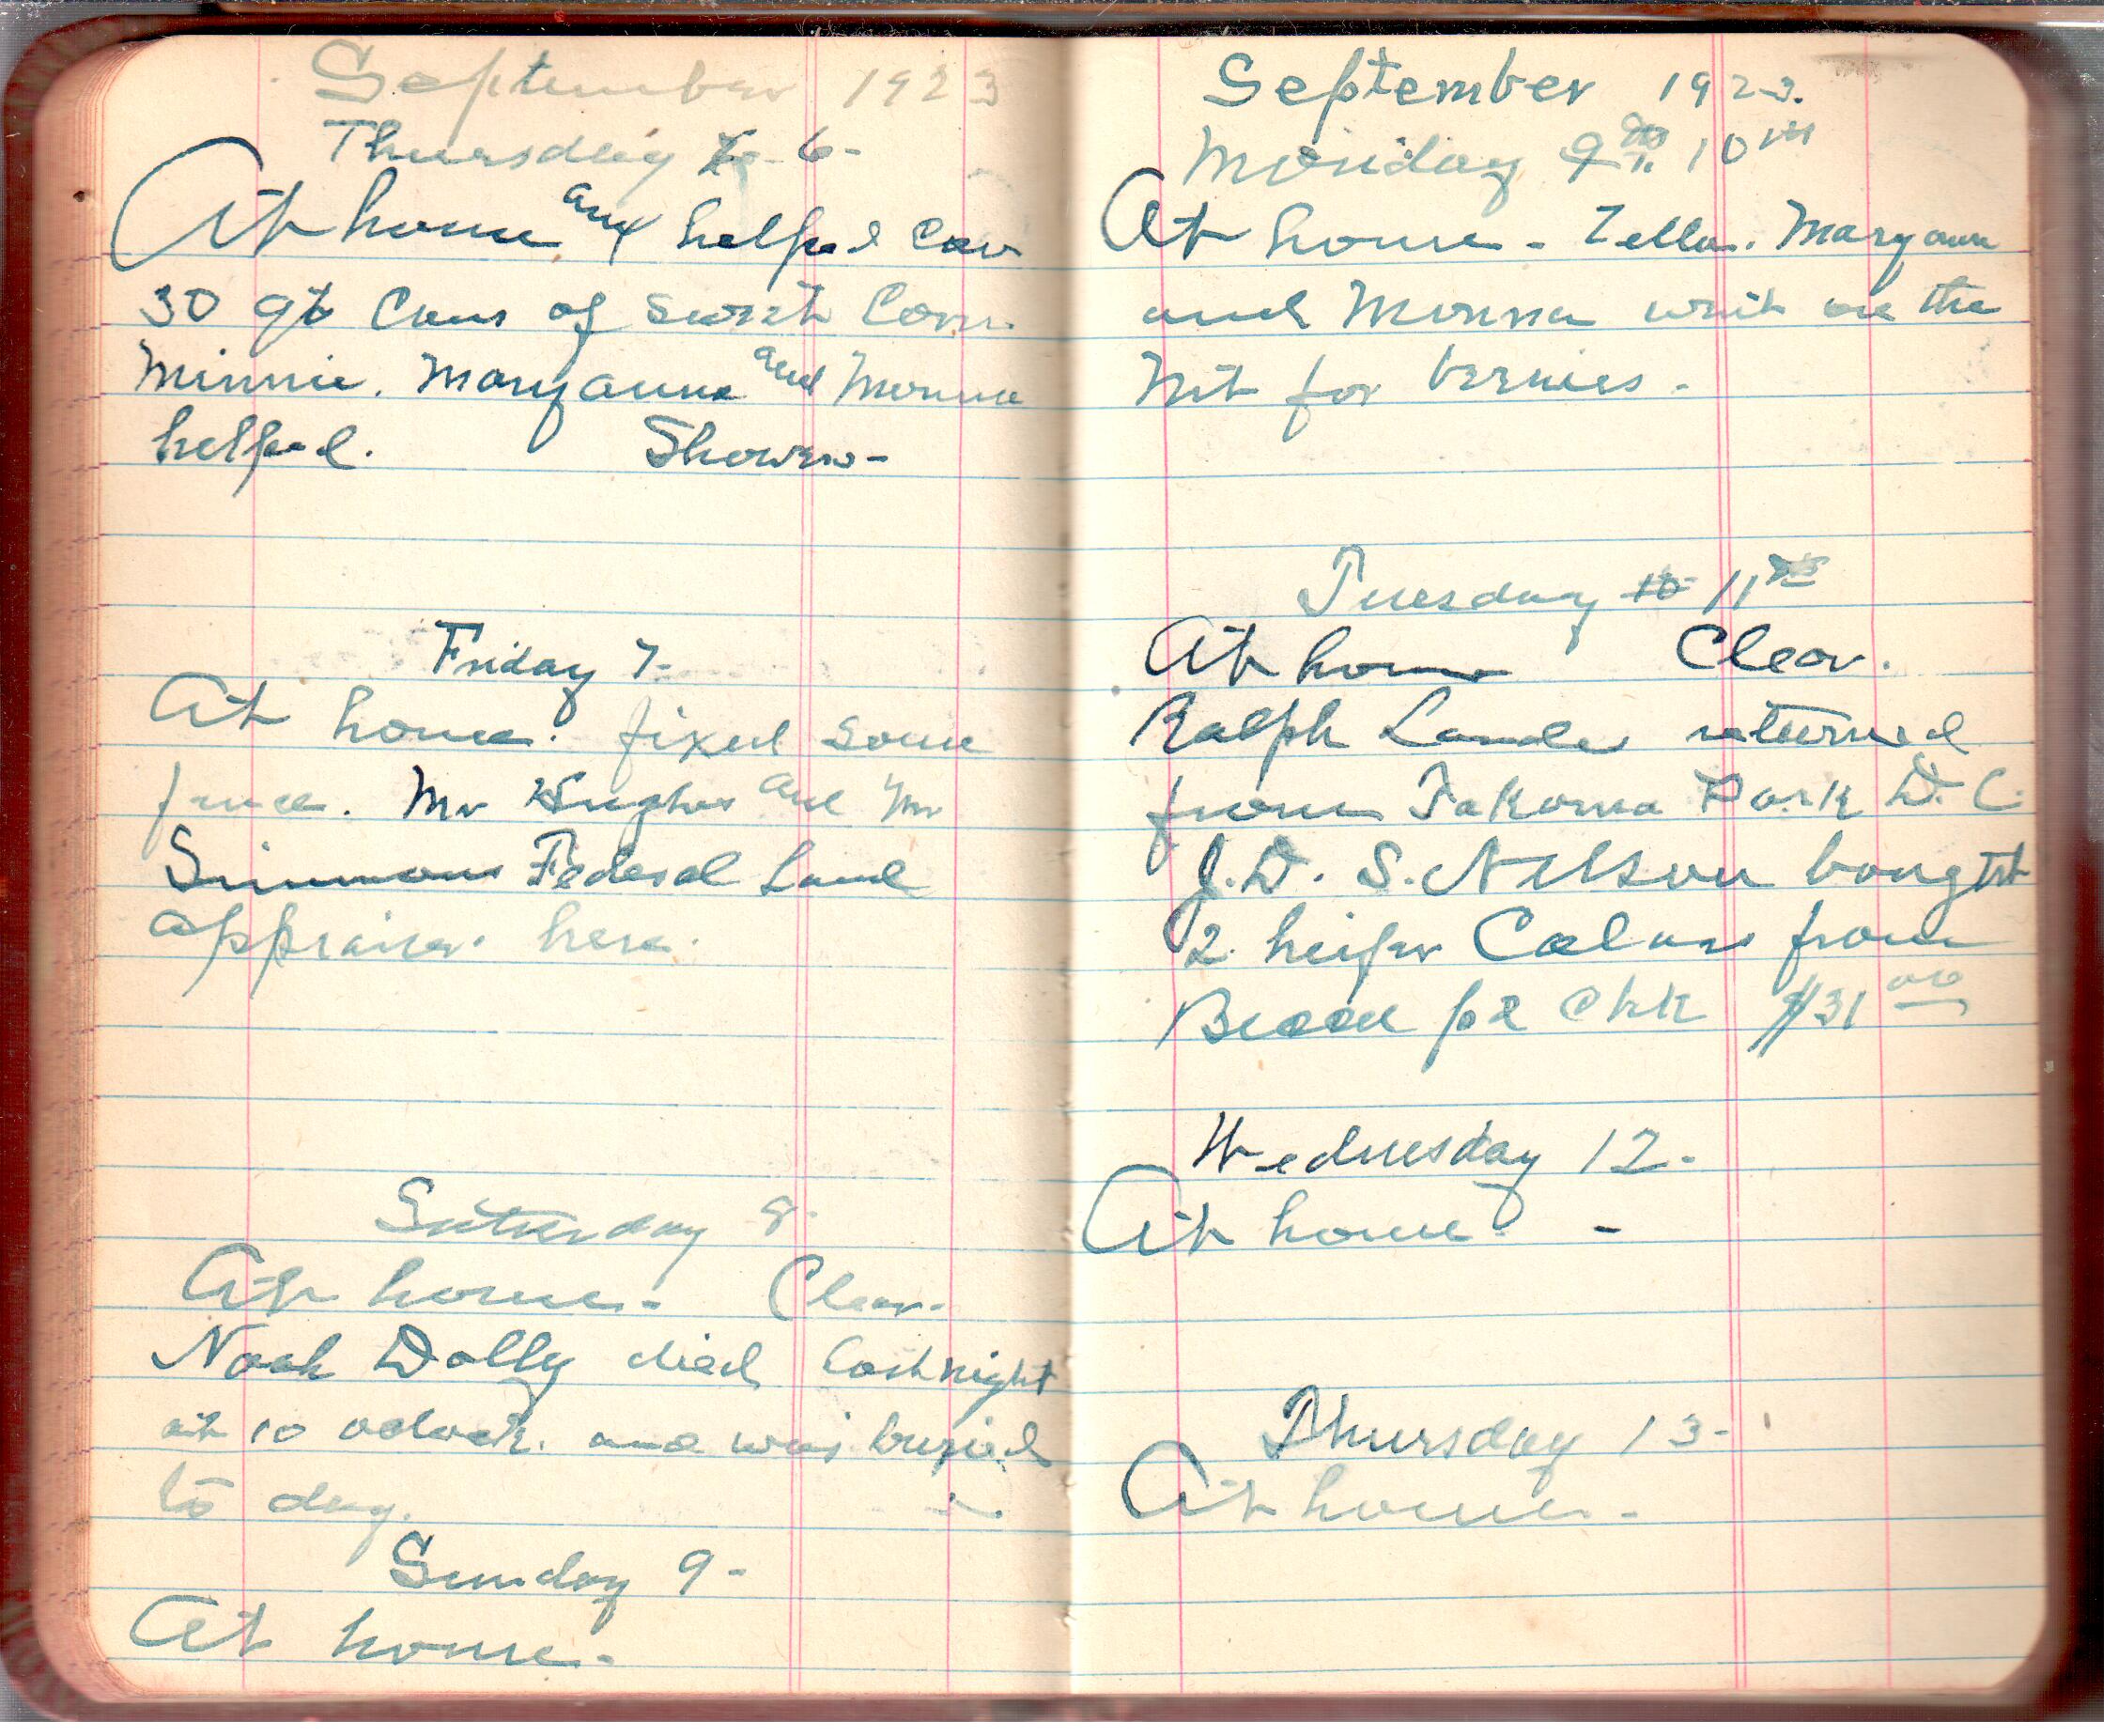 September 1923
Thursday 6-
At home and helped Can
30 qt Cans of sweet Corn.
Minnie. Maryanna and Monna
helped. Showers-
Friday 7-
At home. fixed some
fence. Mr Hughes and Mr
Simmons Federal Land
appraiser. here.
Saturday 8-
At home. Clear.
Noah Dolly died last night
at 10 oclock. and was buried
to day.
Sunday 9-
At home.
September 1923.
Monday 9th 10th
At home - Zella. Maryann
and Monna went on the
Mt for berries.
Tuesday 10 11th
At home Clear.
Ralph Landes returned
from Takoma Park D.C.
J.D. S. Nelson bought
2 heifer Calves from
pd Chk $31 00
Wednesday 12.
At home -
Thursday 13-
At home.